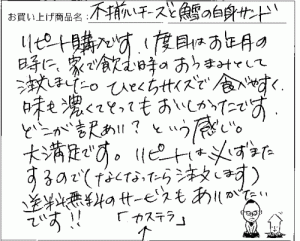 お買い上げ商品名: 不揃いチーズと鱈の白身サンド
リピート購入です。1度目はお正月の
時に、家で飲む時のおつまみとして
注文しました。ひとくちサイズで食べやすく、
味も濃くてとってもおいしかったです。
どこが訳あり!? という感じ。
大満足です。リピートは必ずまた
するので(なくなったら注文します)
送料無料のサービスもありがたい
です!! 「カステラ」
↑